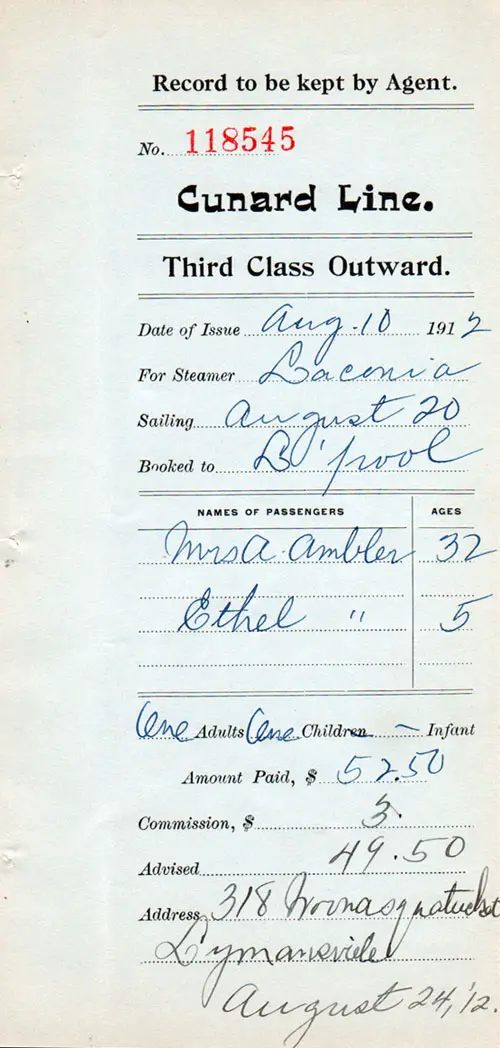 Record to be kept by Agent.
No. 118545
Cunard Line.
Third Class Outward.
Date of Issue Aug. 10 1912
For Steamer Laconia
Sailing August 20
Booked to L'pool
NAMES OF PASSENGERS AGES
Mrs A. Ambler 32
Ethel " 5
One Adults One Children — Infant
Amount Paid, $ 52.50
Commission, $ 3.
Advised 49.50
Address 318 Woonasquatucket
Lymansville
August 24, '12.